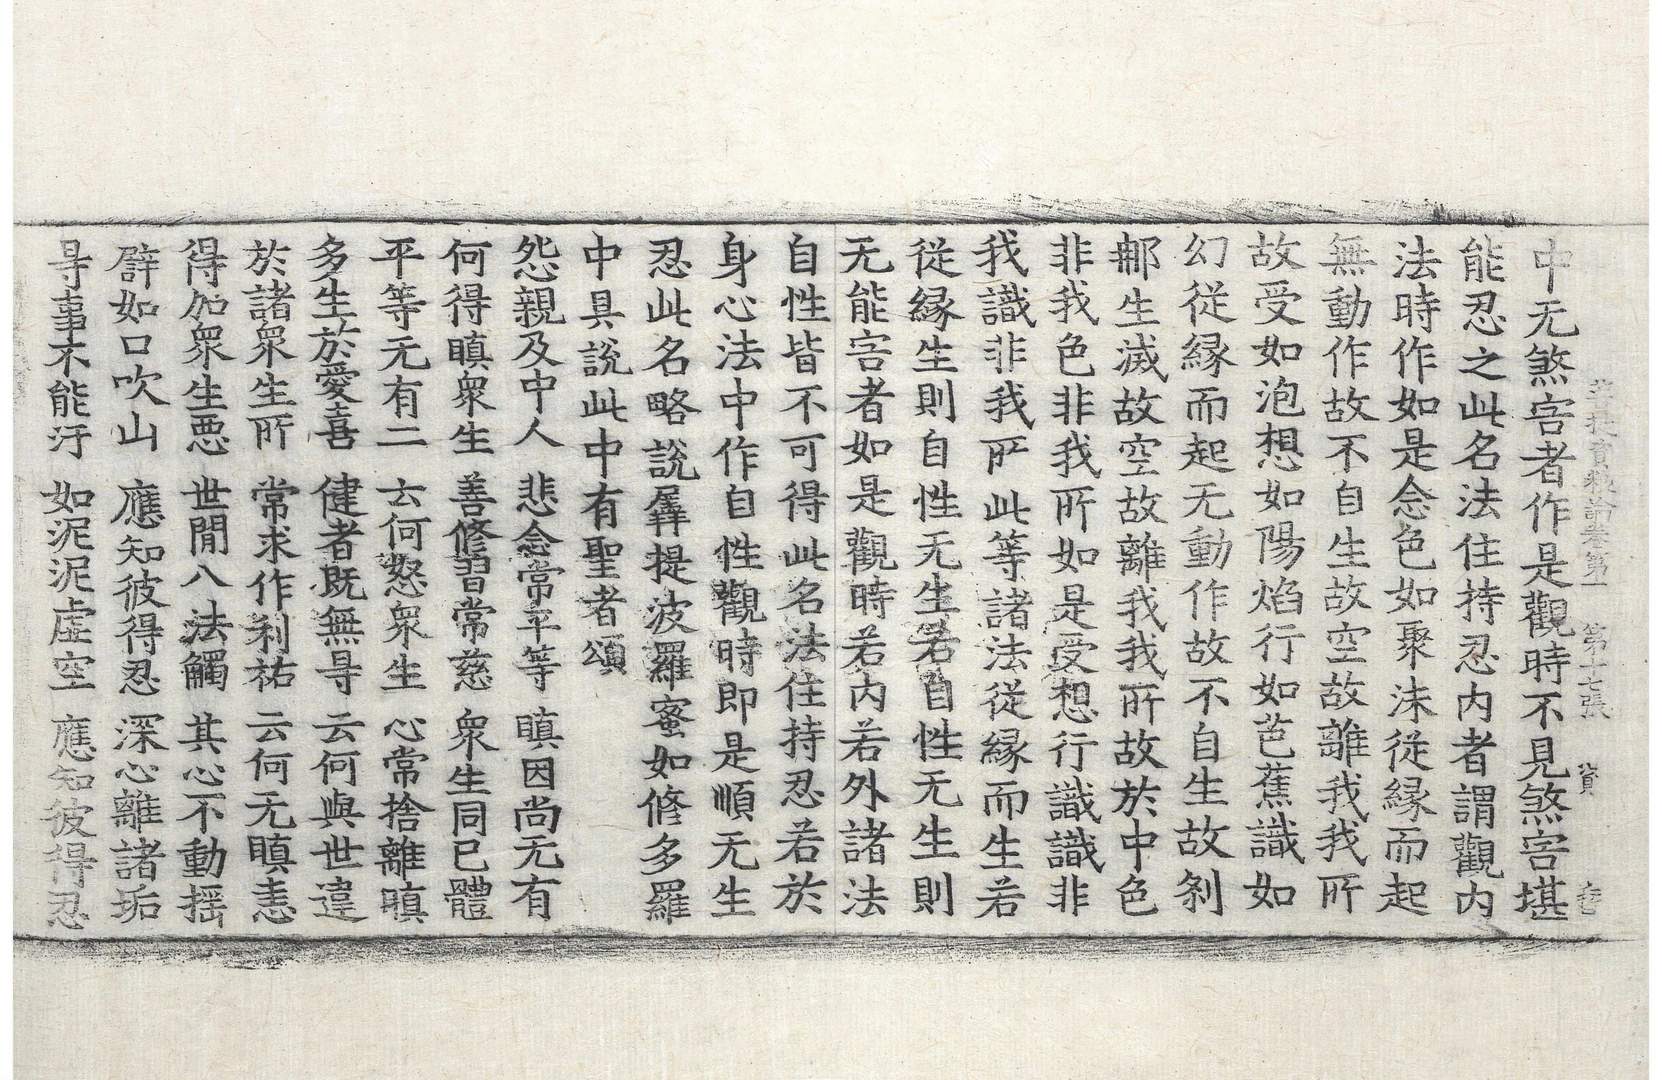 菩提資糧論卷第二 第十七張 資
中无煞害者作是觀時不見煞害堪
能忍之此名法住持忍内者謂觀内
法時作如是念色如聚沫從縁而起
無動作故不自生故空故離我我所
故受如泡想如陽焰行如芭蕉識如
幻從縁而起无動作故不自生故刹
那生滅故空故離我我所故於中色
非我色非我所如是受想行識識非
我識非我所此等諸法從縁而生若
從縁生則自性无生若自性无生則
无能害者如是觀時若内若外諸法
自性皆不可得此名法住持忍若於
身心法中作自性觀時即是順无生
忍此名略說羼提波羅蜜如修多羅
中具說此中有聖者頌
怨親及中人 悲念常平等 瞋因尚无有
何得瞋衆生 善修習常慈 衆生同已體
平等无有二 云何怒衆生 心常捨離瞋
多生於愛喜 健者既無㝵 云何與世違
於諸衆生所 常求作利祐 云何无瞋恚
得加衆生悪 世閒八法觸 其心不動揺
譬如口吹山 應知彼得忍 深心離諸垢
㝵事不能汙 如泥泥虚空 應知彼得忍